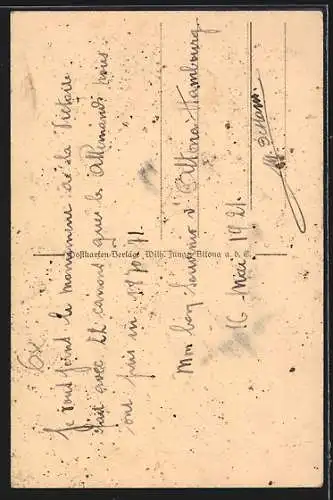 64
Je vous joint le monument de la Victoire
avec 22 canons que les Allemands nous
ont pris en 1870 71
Mon bon Souvenir d'Altona-Hambourg
16 Mai 1921.
Postkarten-Verlag Wilh. Junge, Altona a. d. E.